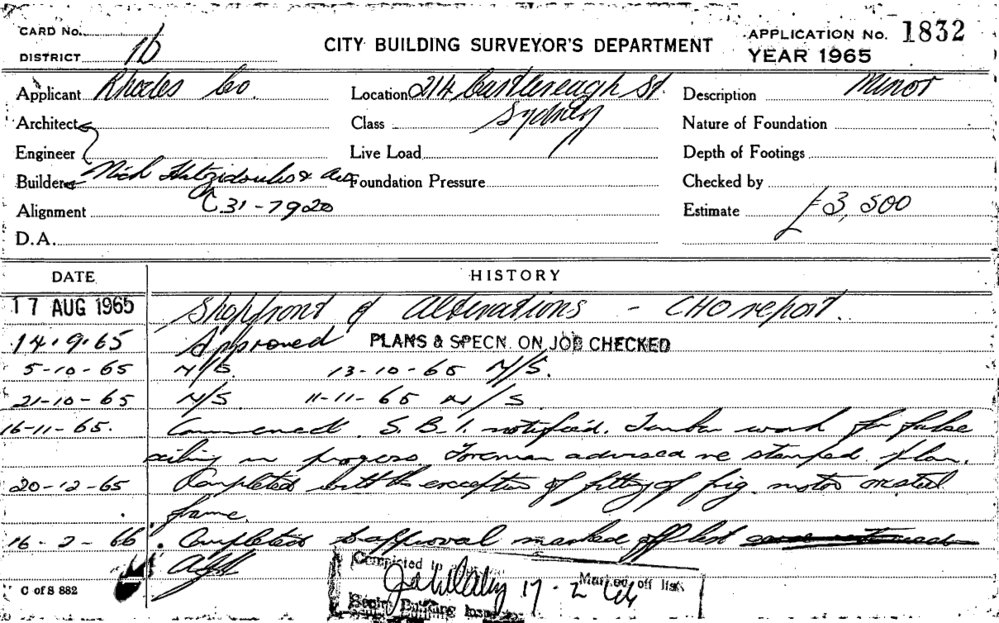 CARD No.
DISTRICT 1b
CITY BUILDING SURVEYOR'S DEPARTMENT
APPLICATION No. 1832
YEAR 1965
Applicant Rhodes Co.
Location 214 Castlereagh St.
Sydney
Description Minor
Architect
Class
Nature of Foundation
Engineer
Live Load
Depth of Footings
Builder Nich
Foundation Pressure
Checked by
Alignment C 31-7920
Estimate £3,500
D.A.
DATE
HISTORY
17 AUG 1965 Shopfront & Alterations - CHO report.
14.9.65 Approved PLANS & SPECN. ON JOB CHECKED
5-10-65 N/S. 13-10-65 N/S.
21-10-65 N/S. 11-11-65 N/S
16-11-65. Commenced. S.B.I. notified. Timber work for false
ceiling in progess Foreman advised re stamped plan.
20-12-65 Completed with the exception of fitting of fig. motor on steel
frame.
16-2-66. Completed approval marked off list
Completed
Marked off list
17-2-66
Senior Building Inspector
C of S 882